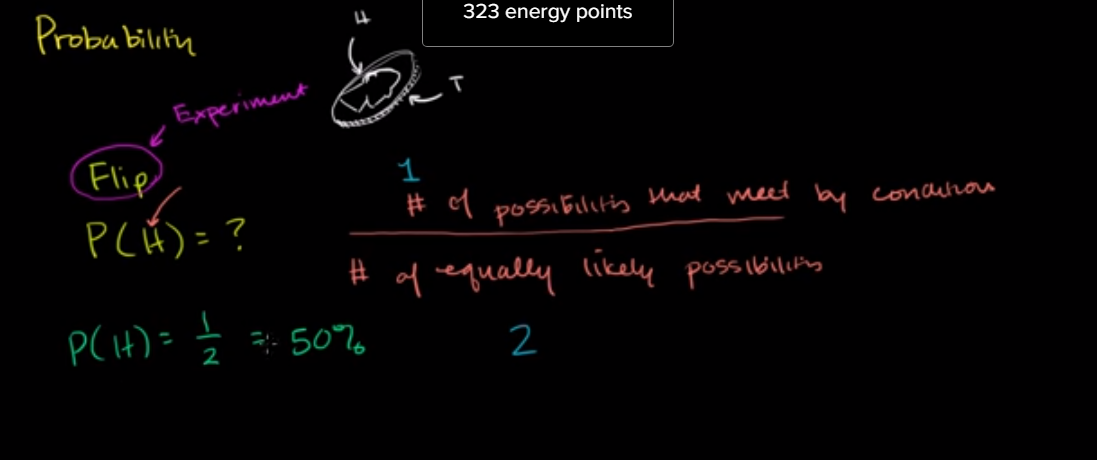 323 energy points
Probability
H
T
Experiment
Flip
1
# of possibilities that meet by condition
P(H) = ?
# of equally likely possibilities
P(H) = 1/2 = 50%
2